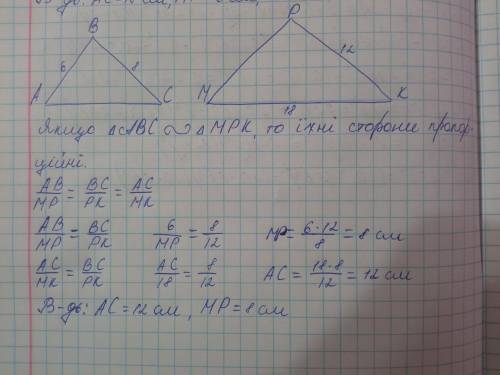 P
B
6
8
12
A
C
M
K
18
Якщо △ABC ∽ △MPK, то їхні сторони пропор-
ційні.
AB/MP = BC/PK = AC/MK
AB/MP = BC/PK 6/MP = 8/12 MP = 6·12/8 = 8 см
AC/MK = BC/PK AC/18 = 8/12 AC = 18·8/12 = 12 см
В-дь: AC = 12 см, MP = 8 см